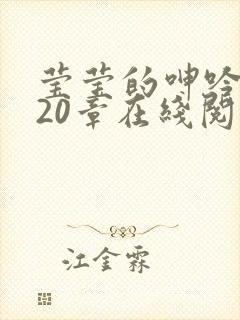 莹莹的呻吟
20章在线阅
江金霖